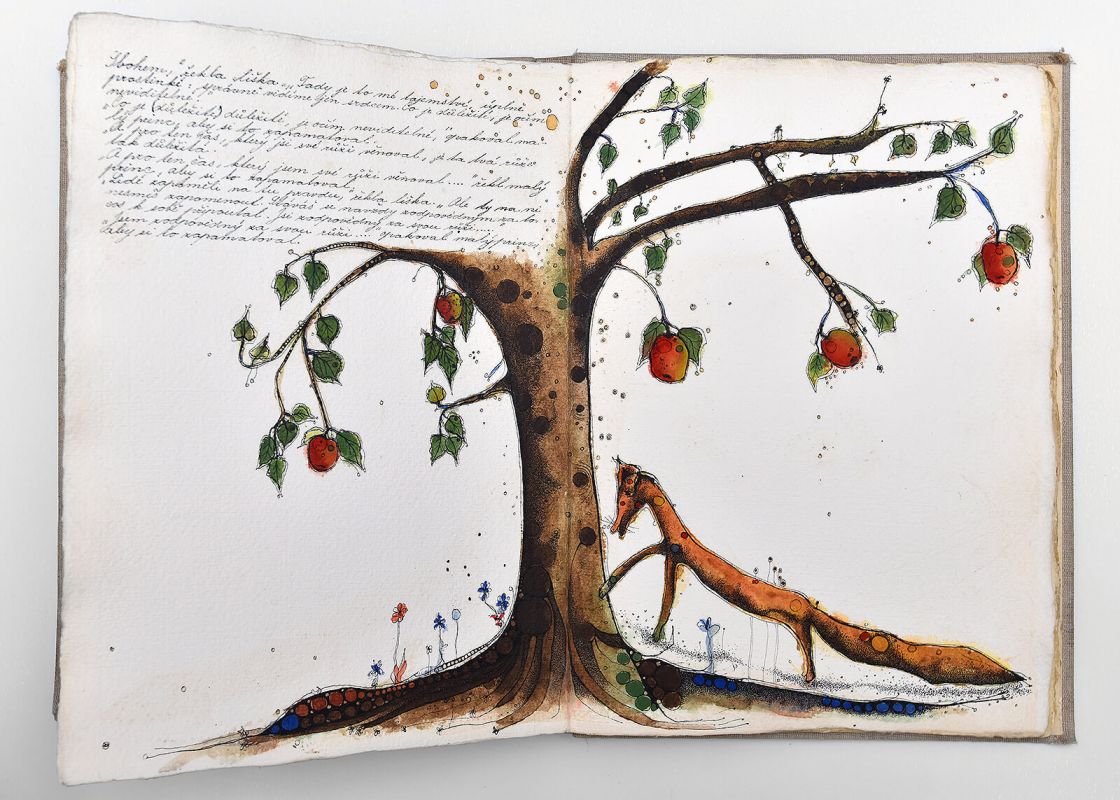 Sbohem," řekla liška. „Tady je to mé tajemství, úplně
prostinké: správně vidíme jen srdcem. Co je důležité, je očím
neviditelné."
„Co je důležité, je očím neviditelné," opakoval malý
princ, aby si to zapamatoval.
„A pro ten čas, který jsi své růži věnoval, je ta tvá růže
tak důležitá."
„A pro ten čas, který jsem své růži věnoval...." řekl malý
princ, aby si to zapamatoval.
„Lidé zapomněli na tu pravdu," řekla liška. „Ale ty na ni
nesmíš zapomenout. Stáváš se navždy zodpovědným za to,
cos k sobě připoutal. Jsi zodpovědný za svou růži..."
„Jsem zodpovědný za svou růži..." opakoval malý princ,
aby si to zapamatoval.